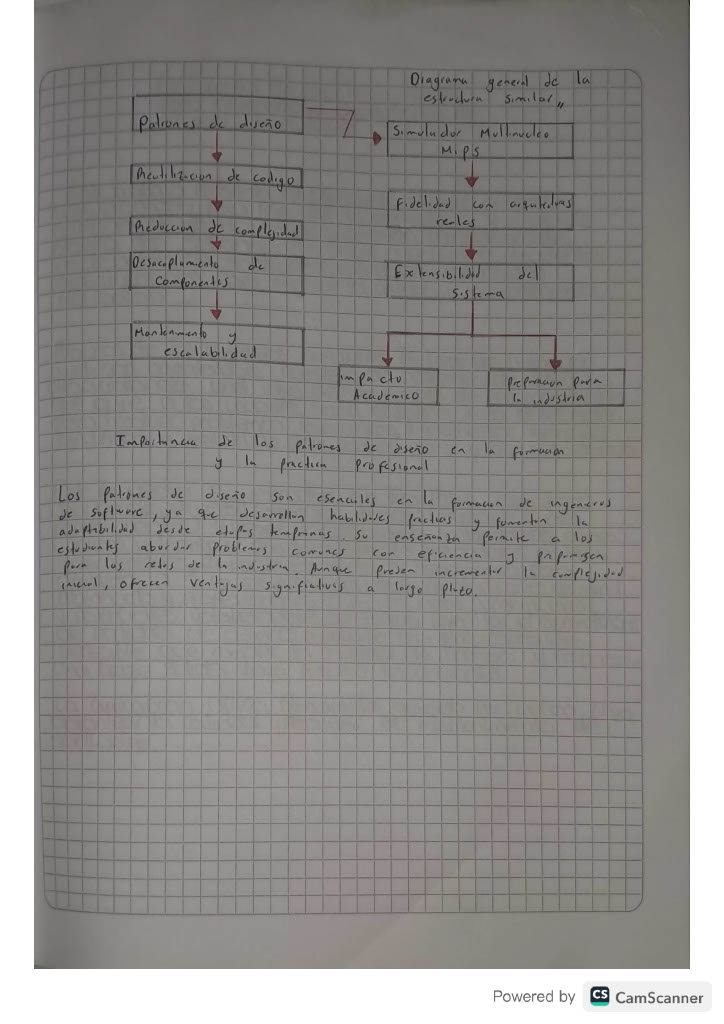 Diagrama general de la
estructura similar,,
Patrones de diseño
Reutilizacion de codigo
Reduccion de complejidad
Desacoplamiento de
Componentes
Mantenimiento y
escalabilidad
Simulador Multinucleo
MIPS
Fidelidad con arquitecturas
reales
Extensibilidad del
Sistema
impacto
Academico
preparacion para
la industria
Importancia de los patrones de diseño en la formacion
y la practica profesional
Los patrones de diseño son esenciales en la formacion de ingenieros
de software, ya que desarrollan habilidades practicas y fomentan la
adaptabilidad desde etapas tempranas. Su enseñanza permite a los
estudiantes abordar problemas comunes con eficiencia y
para los retos de la industria. Aunque pueden incrementar la complejidad
inicial, ofrecen ventajas significativas a largo plazo.
Powered by CS CamScanner